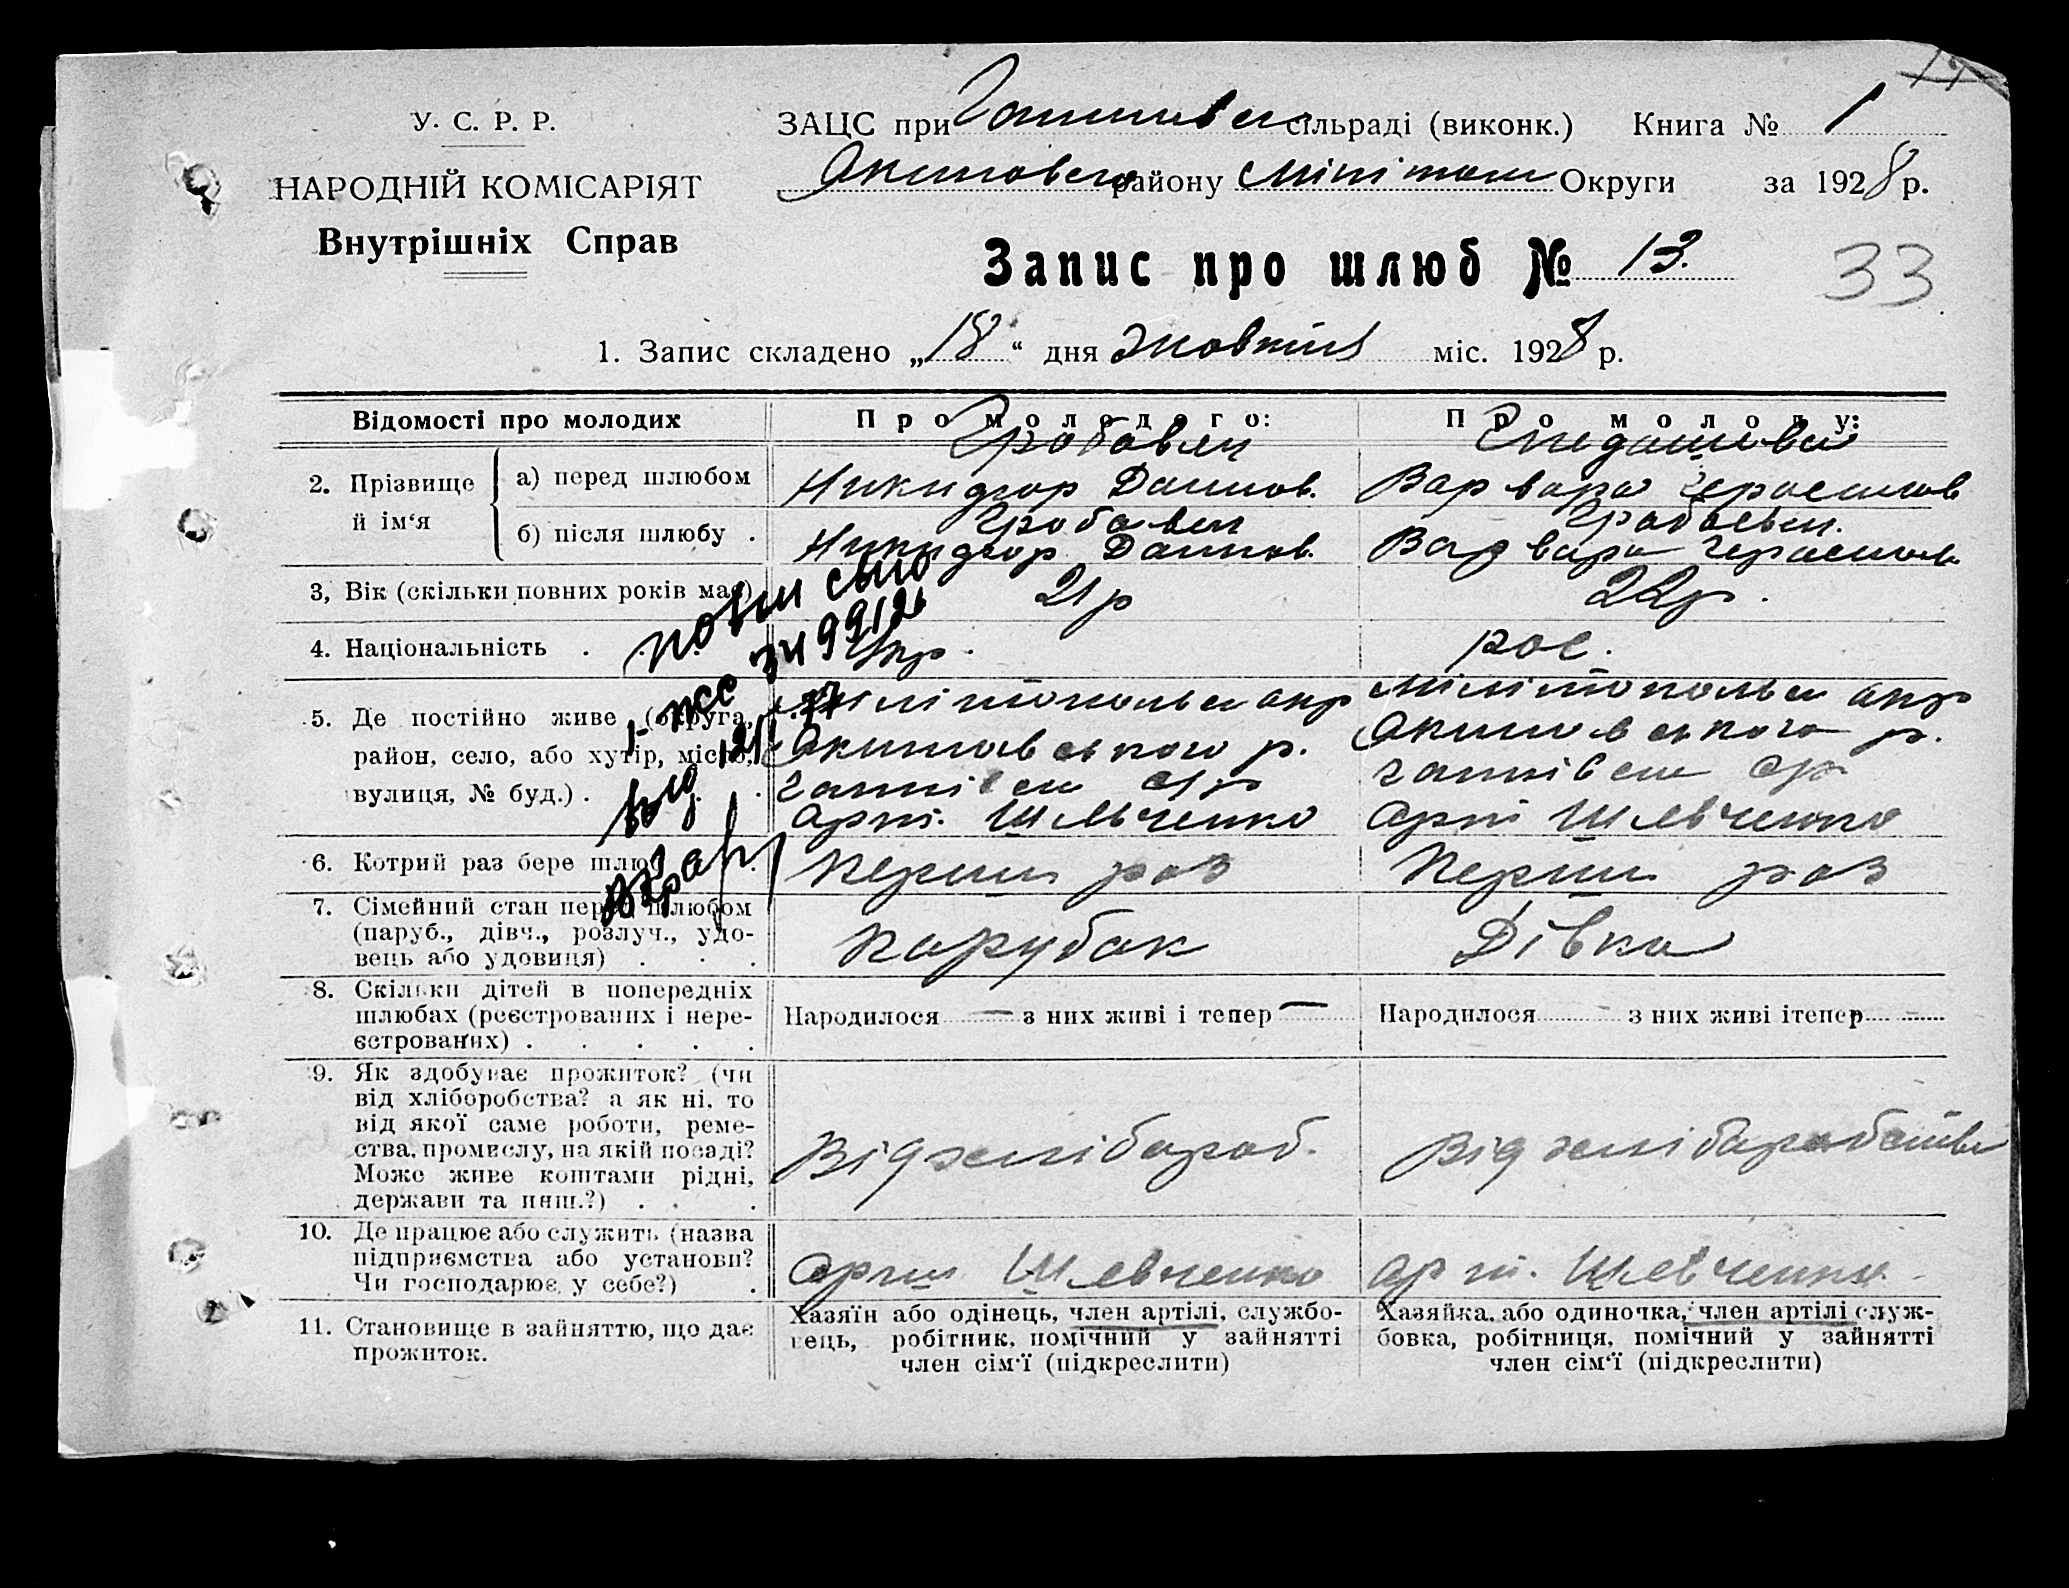 У. С. Р. Р.
НАРОДНІЙ КОМІСАРІЯТ
Внутрішніх Справ
ЗАЦС при сільраді (виконк.) Книга № 1
району Округи за 1928 р.
Запис про шлюб № 13.
33
1. Запис складено „18“ дня жовтня міс. 1928 р.
Відомості про молодих
Про молодого:
Про молоду:
2. Прізвище й ім‘я
а) перед шлюбом
Никидфор
Варвара
б) після шлюбу .
Никидфор
Варвара
3, Вік (скільки повних років має)
21 р
22 р.
4. Національність .
Укр.
рос.
5. Де постійно живе (округа,
район, село, або хутір, місто,
вулиця, № буд.) . .
Мілітопольск окр
Акимовського р.
арт. Шевченко
Мілітопольск окр
Акимовського р.
арт Шевченко
6. Котрий раз бере шлюб .
Перши раз
Перши раз
7. Сімейний стан перед шлюбом
(паруб., дівч., розлуч., удо-
вець або удовиця) . . .
Парубак
Дівка
8. Скільки дітей в попередніх
шлюбах (реєстрованих і нере-
єстрованих) . . . . .
Народилося — з них живі і тепер —
Народилося - з них живі ітепер
9. Як здобуває прожиток? (чи
від хліборобства? а як ні, то
від якої саме роботи, реме-
ства, промислу, на якій посаді?
Може живе коштами рідні,
держави та инш.?) . . .
Від хлібороб.
Від хліборобства
10. Де працює або служить (назва
підприємства або установи?
Чи господарює у себе?) .
арт Шевченко
арт. Шевченко
11. Становище в зайняттю, що дає
прожиток.
Хазяїн або одінець, член артілі, службо-
вець, робітник, помічний у зайнятті
член сім‘ї (підкреслити)
Хазяйка, або одиночка, член артілі служ-
бовка, робітниця, помічний у зайнятті
член сім‘ї (підкреслити)